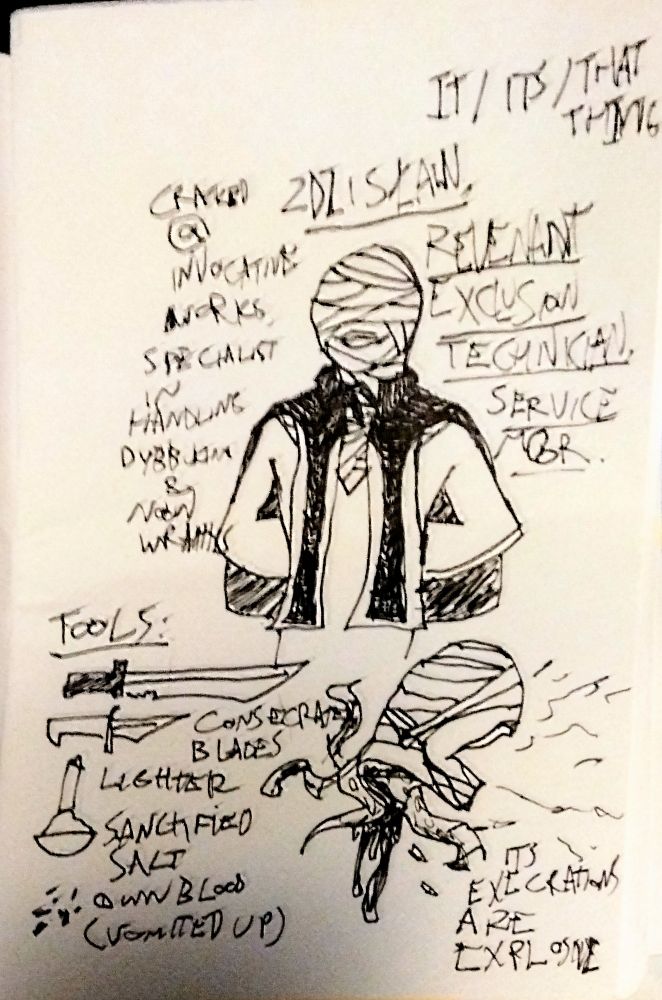 IT / ITS / THAT
THING
ZDZISŁAW.
REVENANT
EXCLUSION
TECHNICIAN.
SERVICE
MGR.
@
INVOCATIVE
WORKS.
SPECIALIST
IN
HANDLING
DYBBUKIM
&
WRAITHS
TOOLS:
CONSECRATED
BLADES
LIGHTER
SANCTIFIED
SALT
OWN BLOOD
(VOMITED UP)
ITS
EXECRATIONS
ARE
EXPLOSIVE